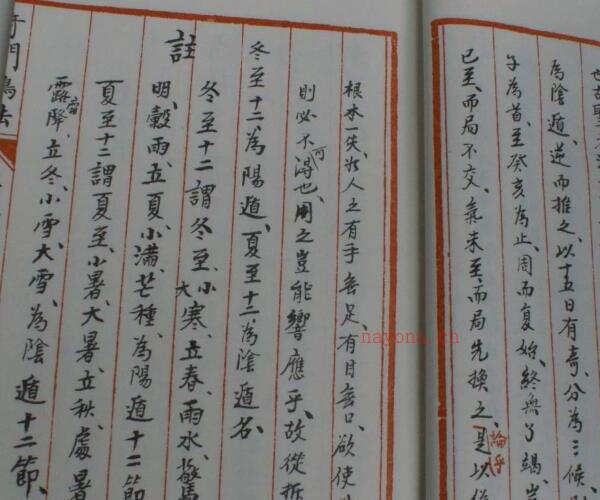 也故聖
為陰遁、逆而推之、以十五日有奇、分為三候、
午為首、至癸亥為止、周而復始、終無了竭、
已至、而局不交、氣未至、而局先換之、是以
論乎
根本一失、如人之有手無足、有目無口、欲使
則必不可得也、用之豈能響應乎、故從拆
冬至十二為陽遁、夏至十二為陰遁名、
註
冬至十二謂冬至、小大寒、立春、雨水、驚
明、穀雨、立夏、小滿、芒種、為陽遁十二節
夏至十二謂夏至、小暑、大暑、立秋、處暑
霜露降、立冬、小雪、大雪、為陰遁十二節、
奇門鳴法
nayona.cn